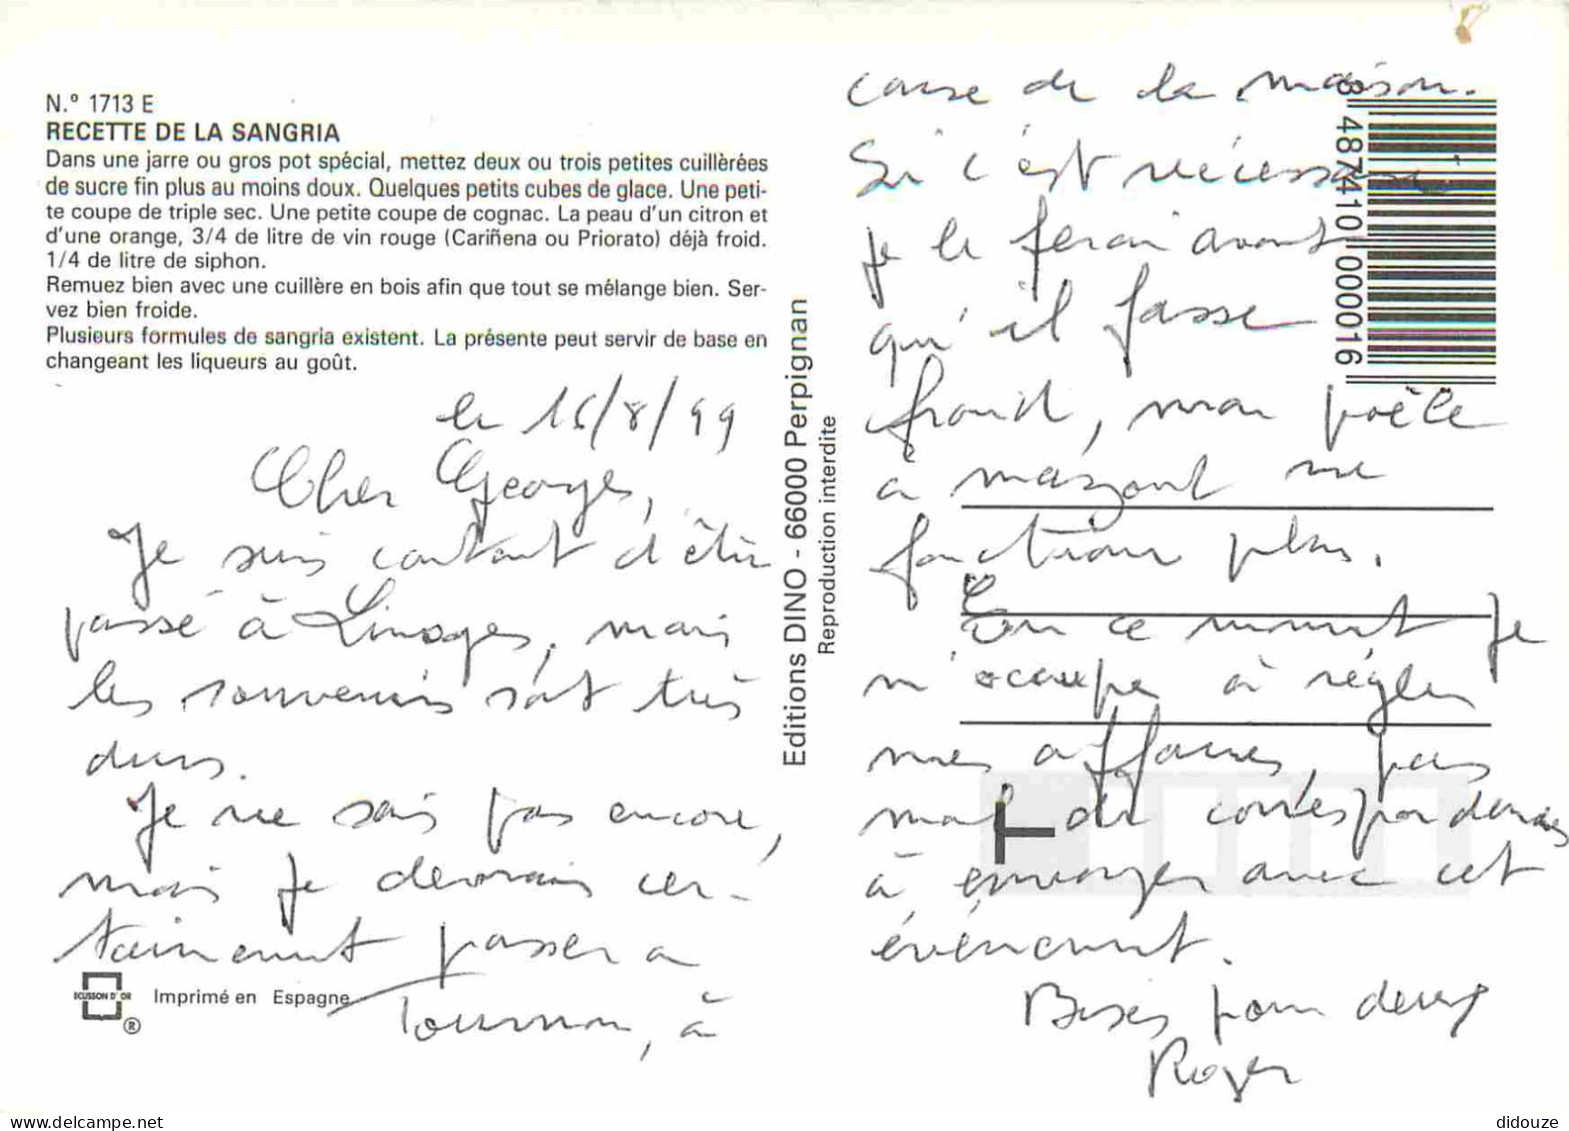 N.º 1713 E
RECETTE DE LA SANGRIA
Dans une jarre ou gros pot spécial, mettez deux ou trois petites cuillèrées
de sucre fin plus au moins doux. Quelques petits cubes de glace. Une peti-
te coupe de triple sec. Une petite coupe de cognac. La peau d'un citron et
d'une orange, 3/4 de litre de vin rouge (Cariñena ou Priorato) déjà froid.
1/4 de litre de siphon.
Remuez bien avec une cuillère en bois afin que tout se mélange bien. Ser-
vez bien froide.
Plusieurs formules de sangria existent. La présente peut servir de base en
changeant les liqueurs au goût.
le 16/8/99
Cher Georges,
Je suis content d'être
passé à Limoges, mais
les souvenirs sont très
durs.
Je ne sais pas encore,
mais je devrais cer-
tainement passer a
Tournon, à
ECUSSON D'OR
Imprimé en Espagne
®
Editions DINO - 66000 Perpignan
Reproduction interdite
cause de la maison.
Si c'est nécessaire
je le ferai avant
qu'il fasse
froid, mon poêle
à mazout ne
fonctionne plus.
En ce moment je
m'occupe à régler
mes affaires, pas
mal de correspondances
à envoyer avec cet
évènement.
Bises pour deux
Roger
8 487410 000016
didouze
delcampe.net